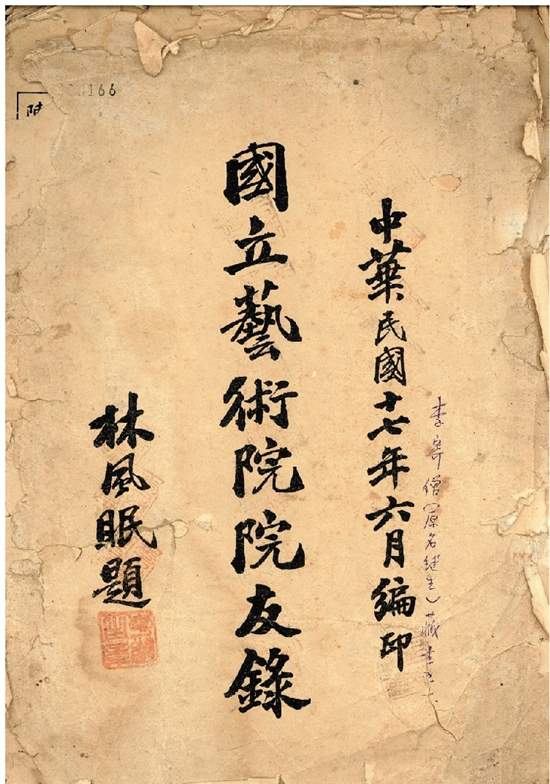 中華民國十七年六月編印
李寄僧（原名继生）藏書
國立藝術院院友錄
林風眠題
166